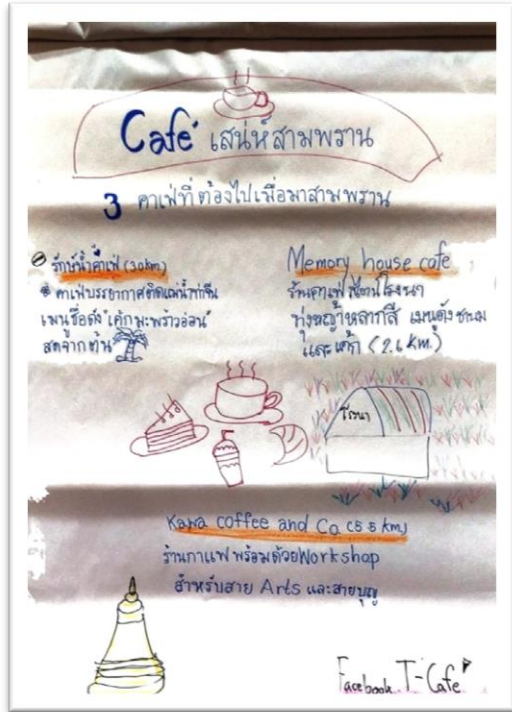 Cafe' เสน่ห์สามพราน
3 คาเฟ่ที่ต้องไปเมื่อมาสามพราน
รักษ์น้ำคาเฟ่ (3.0km)
คาเฟ่บรรยากาศติดแม่น้ำท่าจีน
เมนูชื่อดัง "เค้กมะพร้าวอ่อน"
สดจากต้น
Memory house cafe
ร้านคาเฟ่
ทุ่งหญ้าหลากสี เมนูดัง ชานม
และเค้ก (2.6 km.)
โรงนา
Kawa coffee and Co (5.5 km)
ร้านกาแฟ พร้อมด้วย Workshop
สำหรับสาย Arts และสายบุญ
Facebook T-Cafe'